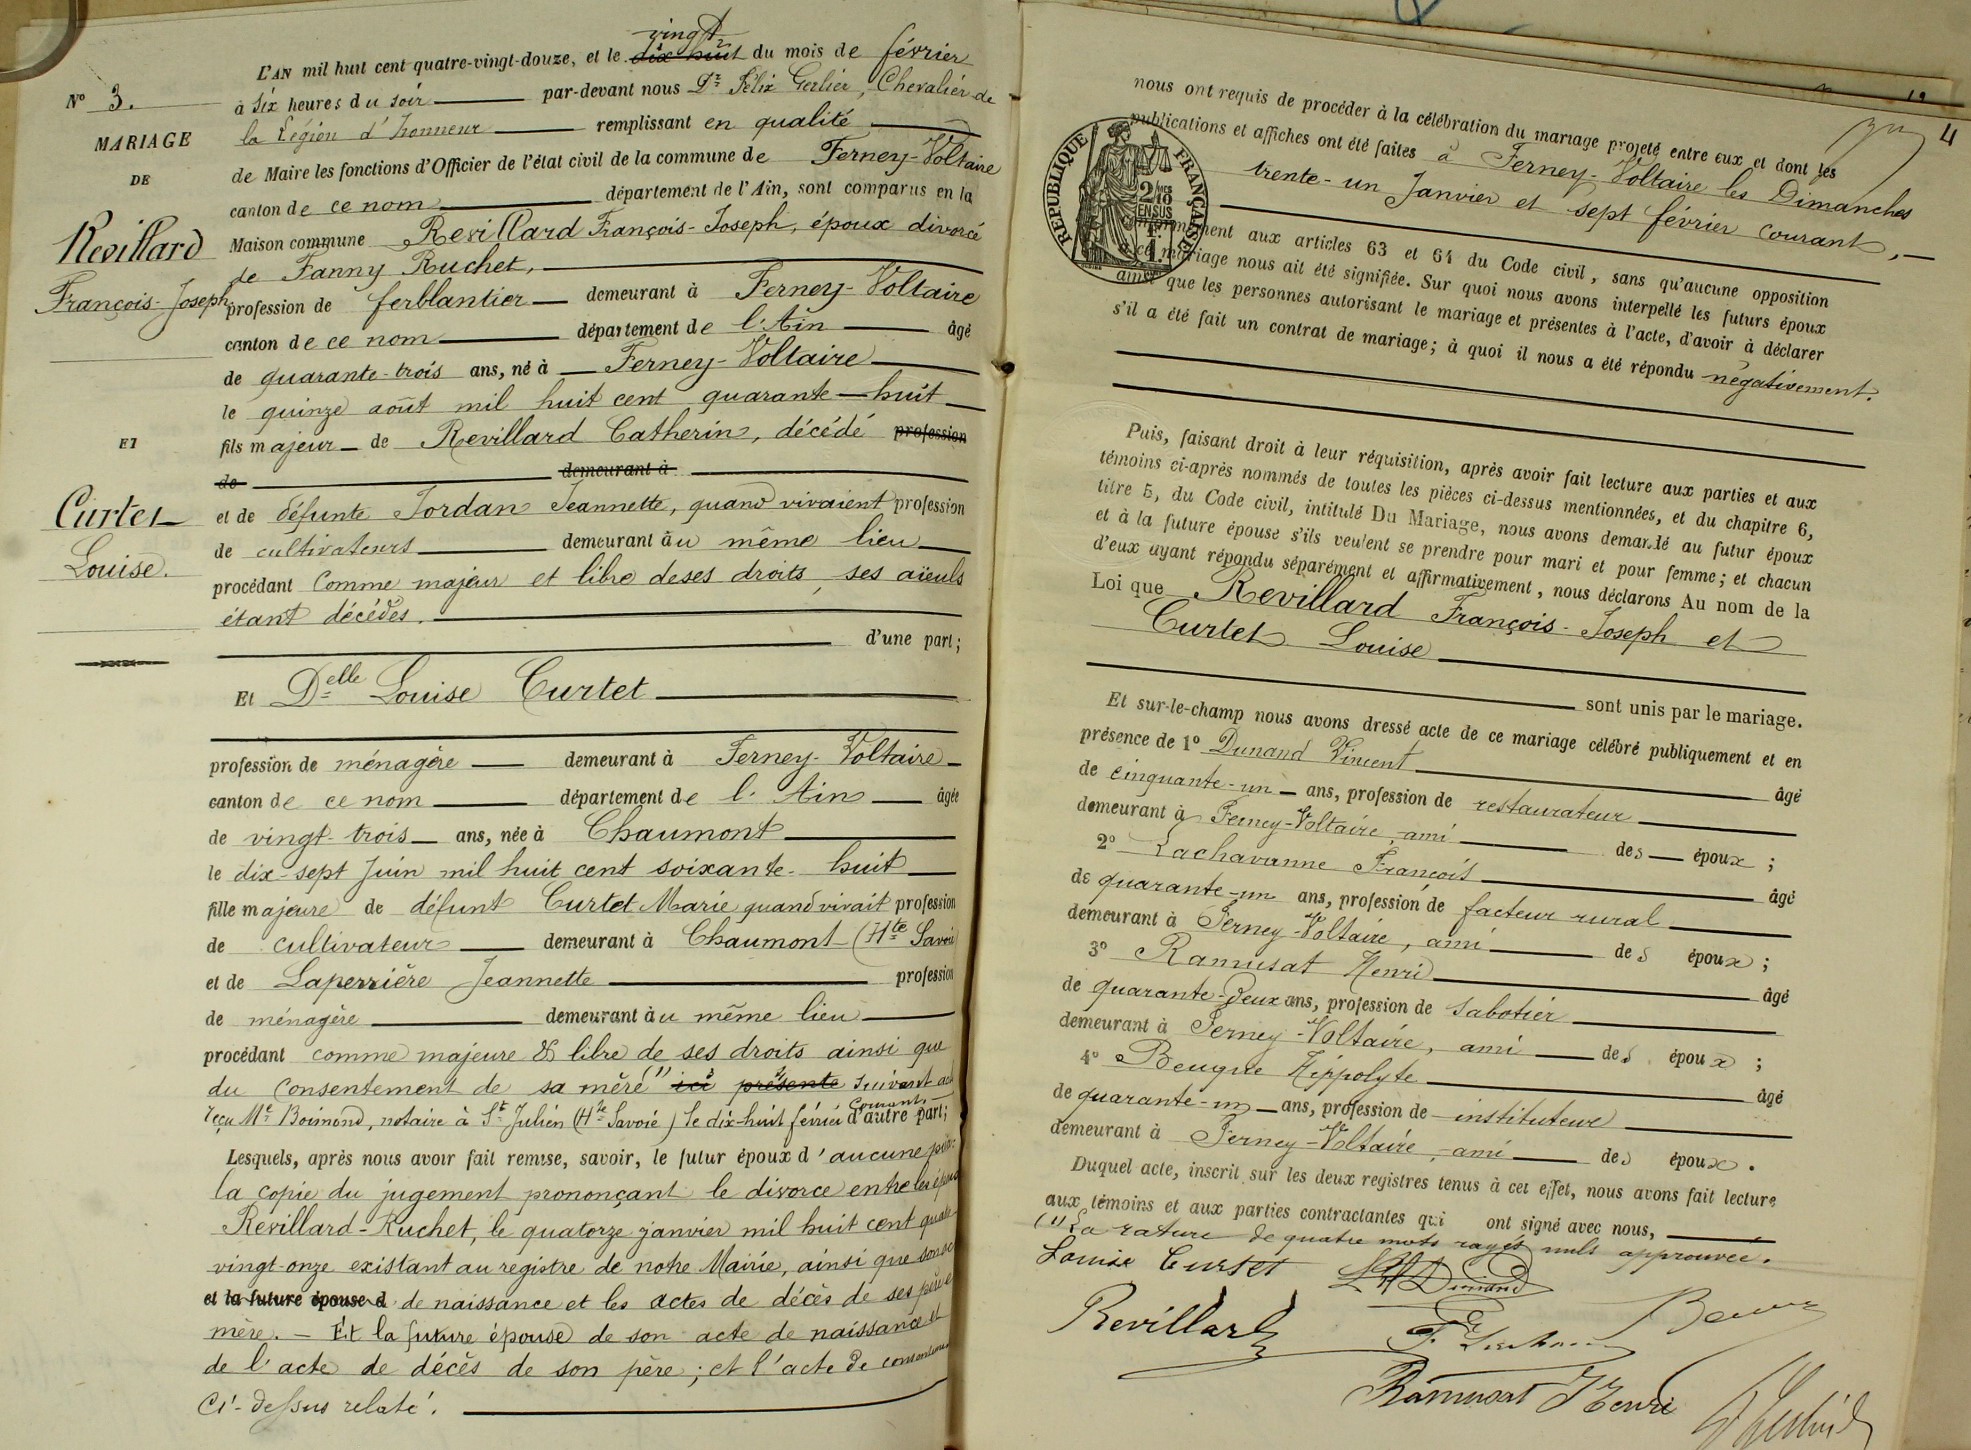 N° 3.
MARIAGE
DE
Revillard
François-Joseph
ET
Curtet
Louise.
vingt
L'AN mil huit cent quatre-vingt-douze, et le dix huit du mois de février
à six heures du soir par-devant nous Dr Félix Gerlier, Chevalier de
la Légion d'honneur remplissant en qualité
de Maire les fonctions d'Officier de l'état civil de la commune de Ferney-Voltaire
canton de ce nom département de l'Ain, sont comparus en la
Maison commune Revillard François-Joseph, époux divorcé
de Fanny Ruchet,
profession de ferblantier demeurant à Ferney-Voltaire
canton de ce nom département de l'Ain âgé
de quarante-trois ans, né à Ferney-Voltaire
le quinze août mil huit cent quarante-huit
fils majeur de Revillard Catherin, décédé profession
de demeurant à
et de défunte Jordan Jeannette, quand vivaient profession
de cultivateurs demeurant au même lieu
procédant comme majeur et libre de ses droits, ses aïeuls
étant décédés.
d'une part;
Et Delle Louise Curtet
profession de ménagère demeurant à Ferney-Voltaire
canton de ce nom département de l'Ain âgée
de vingt-trois ans, née à Chaumont
le dix-sept Juin mil huit cent soixante-huit
fille majeure de défunt Curtet Marie quand vivait profession
de cultivateur demeurant à Chaumont (Hte Savoie
et de Laperrière Jeannette profession
de ménagère demeurant au même lieu
procédant comme majeure & libre de ses droits ainsi que
du consentement de sa mère (1) ici présente suivant acte
reçu Me Boimond, notaire à St Julien (Hte Savoie) le dix-huit février courant, d'autre part;
Lesquels, après nous avoir fait remise, savoir, le futur époux d'aucune pièce
la copie du jugement prononçant le divorce entre les époux
Revillard-Ruchet, le quatorze janvier mil huit cent quatre
vingt-onze existant au registre de notre Mairie, ainsi que son acte
et la future épouse d de naissance et les actes de décès de ses père
mère. — Et la future épouse de son acte de naissance et
de l'acte de décès de son père; et l'acte de consentement
ci-dessus relaté.
4
nous ont requis de procéder à la célébration du mariage projeté entre eux et dont les
publications et affiches ont été faites à Ferney-Voltaire les Dimanches
trente-un Janvier et sept février courant,
RÉPUBLIQUE FRANÇAISE
2/10 EN SUS
conformément aux articles 63 et 64 du Code civil, sans qu'aucune opposition
à ce mariage nous ait été signifiée. Sur quoi nous avons interpellé les futurs époux
ainsi que les personnes autorisant le mariage et présentes à l'acte, d'avoir à déclarer
s'il a été fait un contrat de mariage; à quoi il nous a été répondu négativement.
Puis, faisant droit à leur réquisition, après avoir fait lecture aux parties et aux
témoins ci-après nommés de toutes les pièces ci-dessus mentionnées, et du chapitre 6,
titre 5, du Code civil, intitulé Du Mariage, nous avons demandé au futur époux
et à la future épouse s'ils veulent se prendre pour mari et pour femme; et chacun
d'eux ayant répondu séparément et affirmativement, nous déclarons Au nom de la
Loi que Revillard François-Joseph et
Curtet Louise
sont unis par le mariage.
Et sur-le-champ nous avons dressé acte de ce mariage célébré publiquement et en
présence de 1° Dunand Vincent âgé
de cinquante-un ans, profession de restaurateur
demeurant à Ferney-Voltaire, ami des époux;
2° Lachavanne François âgé
de quarante-un ans, profession de facteur rural
demeurant à Ferney-Voltaire, ami des époux;
3° Ramusat Henri âgé
de quarante-deux ans, profession de sabotier
demeurant à Ferney-Voltaire, ami des époux;
4° Beugne Hippolyte âgé
de quarante-un ans, profession de instituteur
demeurant à Ferney-Voltaire, ami des époux.
Duquel acte, inscrit sur les deux registres tenus à cet effet, nous avons fait lecture
aux témoins et aux parties contractantes qui ont signé avec nous,
(1) La rature de quatre mots rayés nuls approuvée.
Louise Curtet Dunand
Revillard
Ramusat Henri